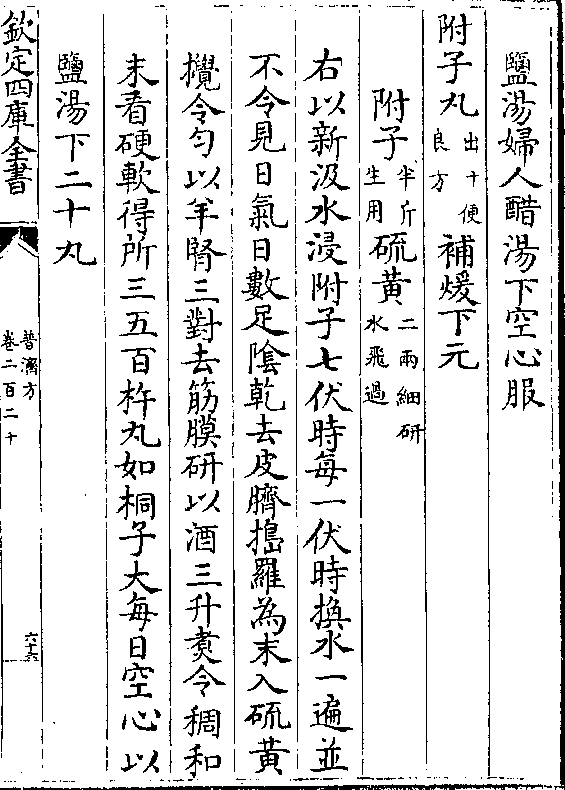 鹽湯婦人醋湯下空心服
附子丸出十便良方 補煖下元
附子半斤生用 硫黄二兩細研水飛過
右以新汲水浸附子七伏時每一伏時換水一遍並
不令見日氣日數足陰乾去皮臍搗羅為末入硫黄
攪令勻以羊腎三對去筋膜研以酒三升煑令稠和
末看硬軟得所三五百杵丸如桐子大每日空心以
鹽湯下二十丸
欽定四庫全書
普濟方
卷二百二十
六十六